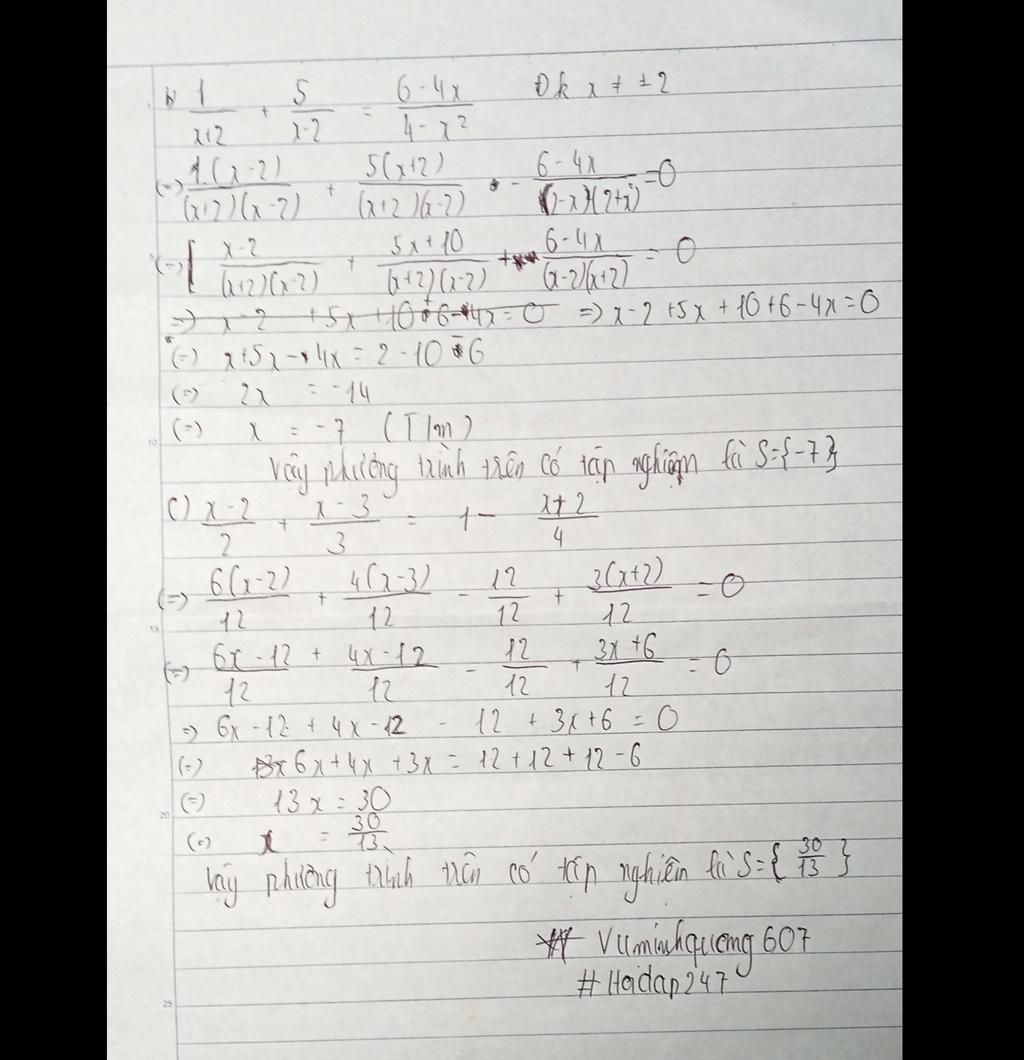 b) 1/(x+2) + 5/(x-2) = (6-4x)/(4-x²) Đk x ≠ ±2
(=) 1.(x-2)/((x+2)(x-2)) + 5(x+2)/((x+2)(x-2)) - (6-4x)/((2-x)(2+x)) = 0
(=) x-2/((x+2)(x-2)) + 5x+10/((x+2)(x-2)) + 6-4x/((x-2)(x+2)) = 0
=) x-2 +5x+10+6-4x=0 =) x-2+5x+10+6-4x=0
(=) x+5x-4x = 2-10-6
(=) 2x = -14
(=) x = -7 (T/m)
Vậy phương trình trên có tập nghiệm là S={-7}
C) (x-2)/2 + (x-3)/3 = 1 - (x+2)/4
(=) 6(x-2)/12 + 4(x-3)/12 - 12/12 + 3(x+2)/12 = 0
(=) 6x-12/12 + 4x-12/12 - 12/12 + 3x+6/12 = 0
=) 6x-12 + 4x-12 - 12 + 3x+6 = 0
(=) 6x+4x+3x = 12+12+12-6
(=) 13x = 30
(=) x = 30/13
Vậy phương trình trên có tập nghiên là S={30/13}
# Vuminhquang607
#Hoidap247